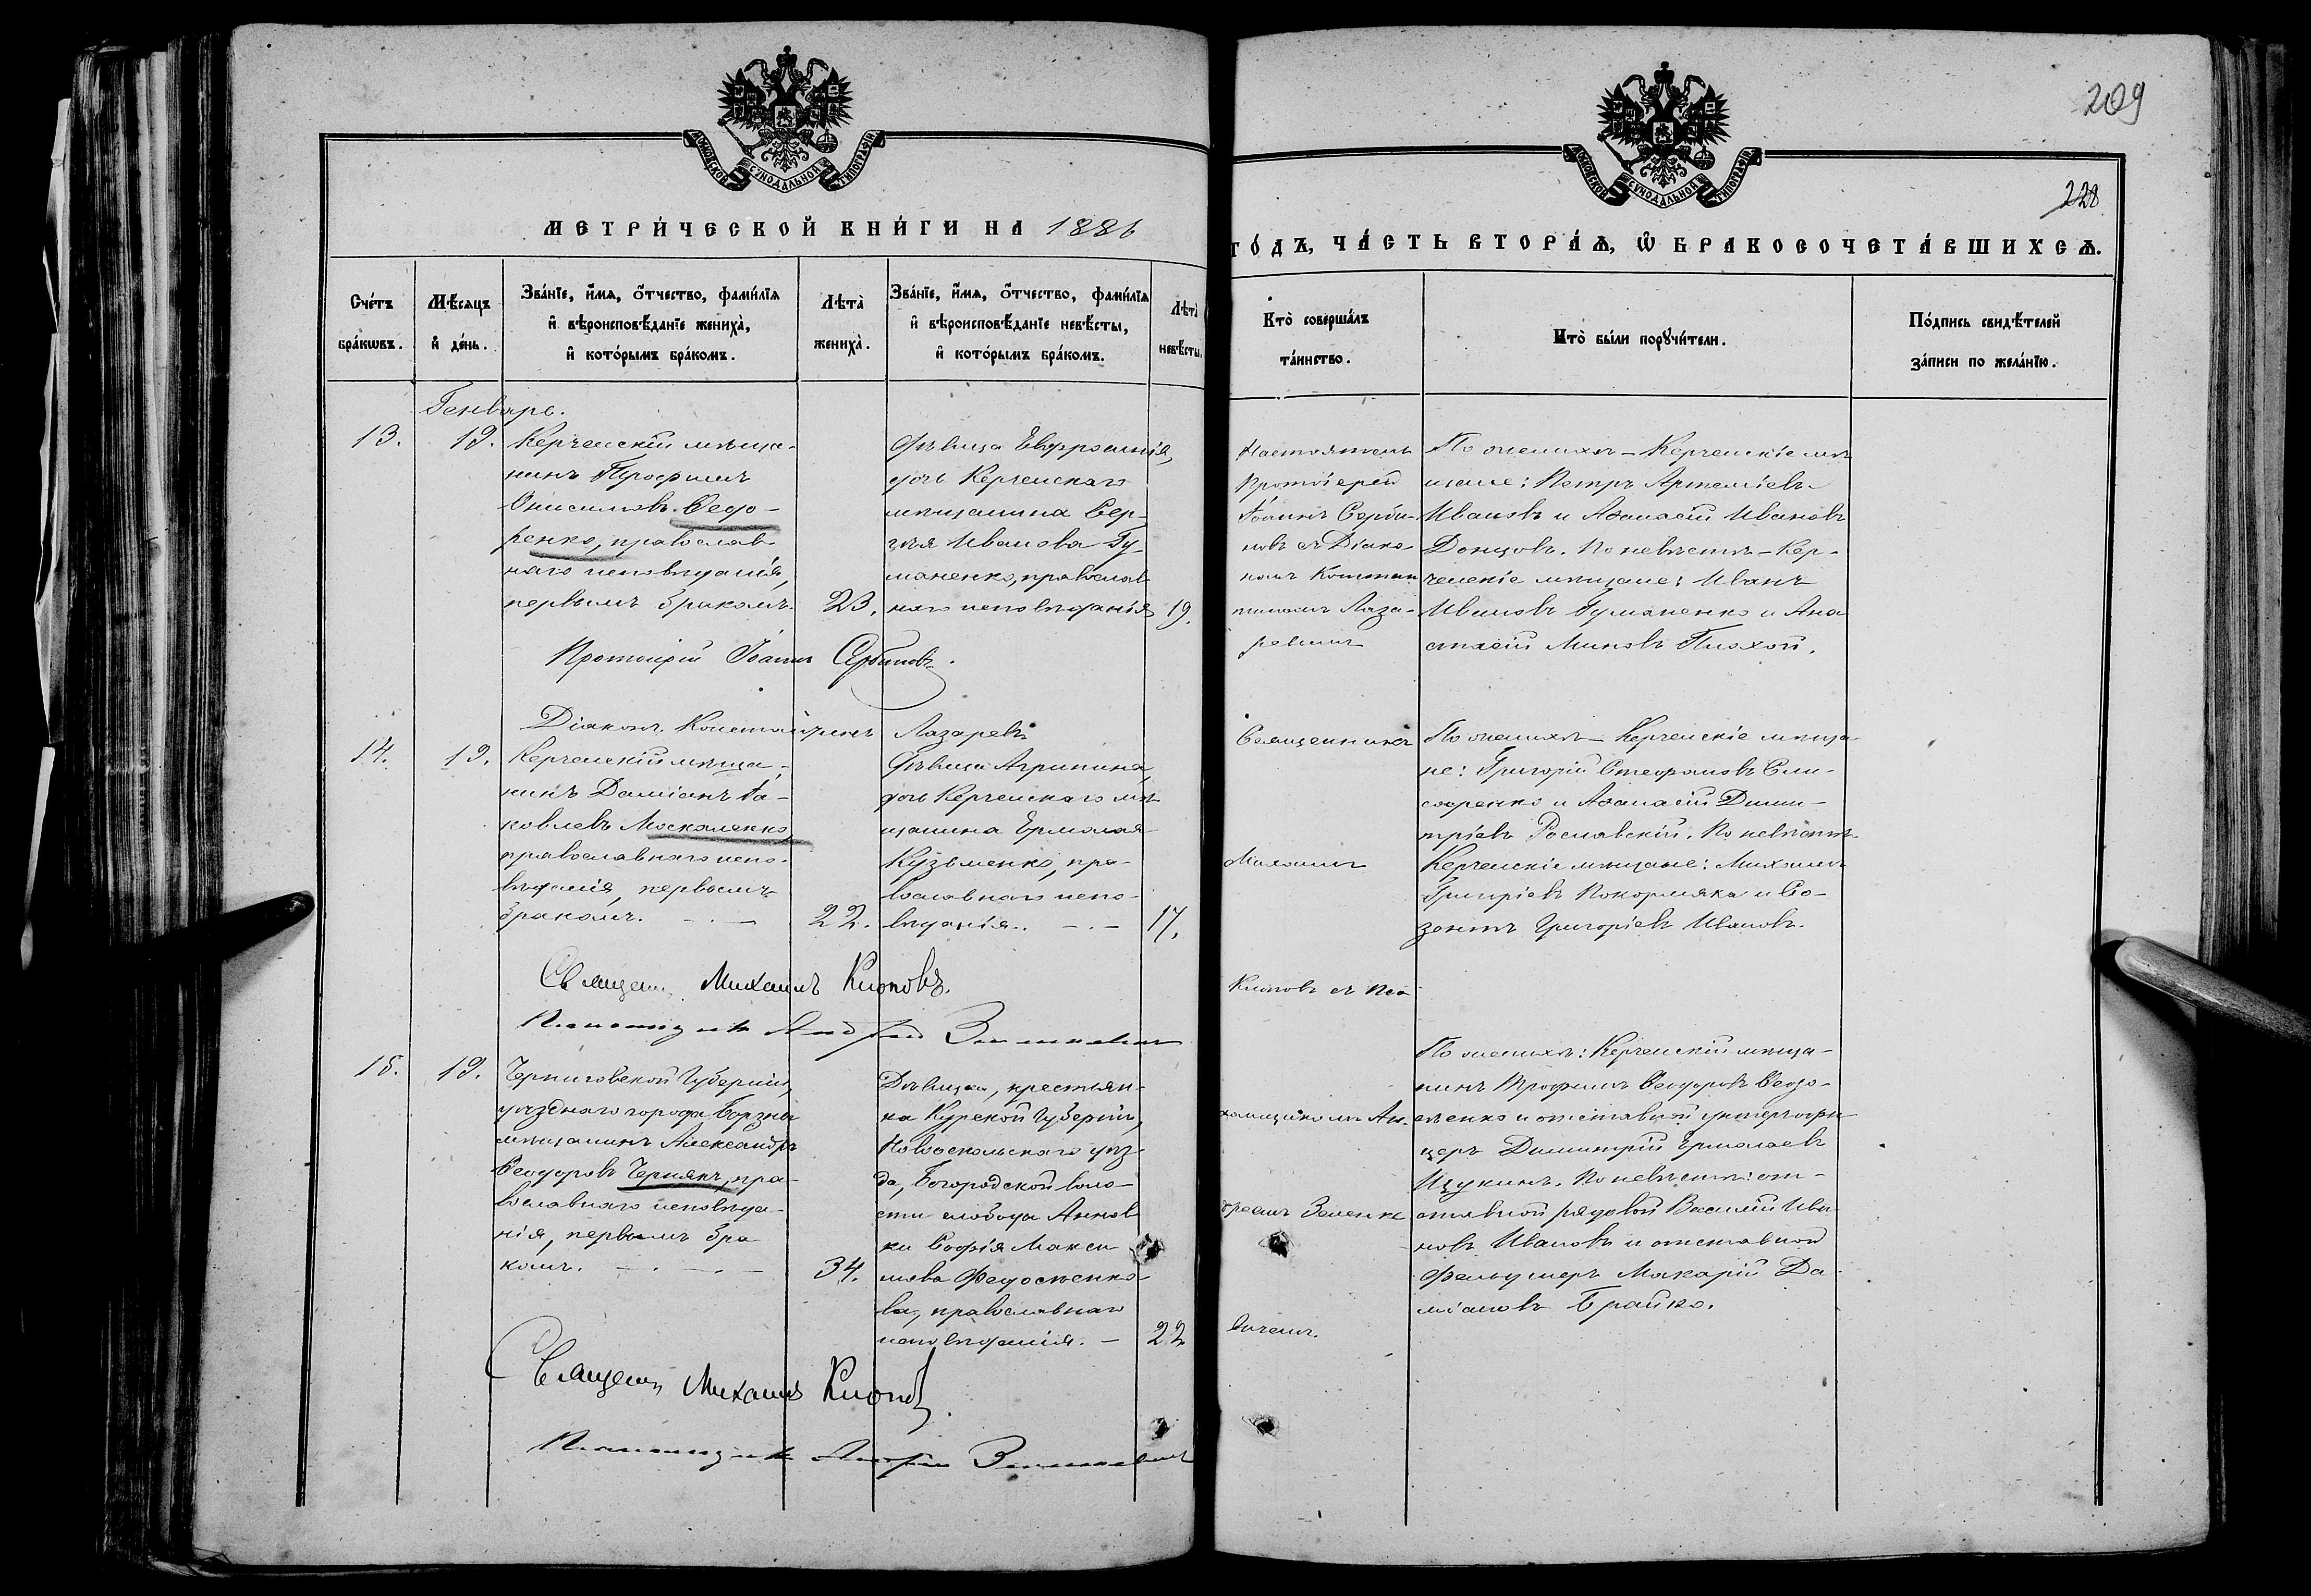 209
228
МОСКОВСКОЙ СѴНОДАЛЬНОЙ ТИПОГРАФІИ
МОСКОВСКОЙ СѴНОДАЛЬНОЙ ТИПОГРАФІИ
МЕТРИ́ЧЕСКОЙ КНИ́ГИ НА 1886
ГО́ДЪ, ЧА́СТЬ ВТОРА́Я, Ѡ БРАКОСОЧЕТА́ВШИХСЯ.
Сче́тъ
бра́кѡвъ.
Мѣ́сяцъ
и҆ де́нь.
Зва́нїе, и҆́мя, о҆́тчество, фами́лїя
и҆ вѣроисповѣ́данїе жениха̀,
и҆ кото́рымъ бра́комъ.
Лѣта̀
жениха̀.
Зва́нїе, и҆́мя, о҆́тчество, фами́лїя
и҆ вѣроисповѣ́данїе невѣ́сты,
и҆ кото́рымъ бра́комъ.
Лѣта̀
невѣ́сты.
Кто̀ соверша́лъ
та́инство.
Кто̀ бы́ли порꙋчи́тели.
По́дпись свидѣ́телей
за́писи по жела́нїю.
Генварь.
13.
19.
Керченскій мѣща-
нинъ Трофимъ
Онисимовъ Ѳедо-
ренко, православ
наго исповѣданія,
первымъ бракомъ.
23.
Дѣвица Евфросинія,
дочь Керченскаго
мѣщанина Сер-
гѣя Иванова Гу-
маненко, православ
наго исповѣданія
19.
Настоятель
Протоіерей
Іоаннъ Серби-
новъ съ Діако-
номъ Констан
тиномъ Лаза-
ревымъ
По женихѣ – Керченскіе мѣ
щане: Петръ Артеміевъ
Ивановъ и Аѳанасій Ивановъ
Донцовъ. По невѣстѣ – Кер-
ченскіе мѣщане: Иванъ
Ивановъ Гуманенко и Ана
стасій Миновъ Плохой.
Протоіерей Іоаннъ Сербиновъ.
Діаконъ Константинъ Лазаревъ
14.
19.
Керченскій мѣща-
нинъ Даміанъ Іа-
ковлевъ Москаленко,
православнаго испо-
вѣданія, первымъ
бракомъ.
22.
Дѣвица Агрипина,
дочь Керченскаго мѣ
щанина Ермолая
Кузьменко, пра-
вославнаго испо-
вѣданія.
17.
Священникъ
Михаилъ
Клоповъ съ Пса
По женихѣ – Керченскіе мѣща-
не: Григорій Стефановъ Сли-
саренко и Аѳанасій Дими-
тріевъ Рославскій. По невѣстѣ
Керченскіе мѣщане: Михаилъ
Григоріевъ Покормяка и Со-
зонтъ Григоріевъ Ивановъ.
Священ. Михаилъ Клоповъ.
Псаломщикъ Андрей
15.
19.
Черниговской Губерніи,
уѣзднаго города Борзны
мѣщанинъ Александръ
Ѳеодоровъ Чернякъ, пра-
вославнаго исповѣда-
нія, первымъ бра
комъ.
34.
Дѣвица, крестьян-
ка Курской Губерніи,
Новооскольскаго уѣз-
да, Богородской воло-
сти слободы Аннов
ки Софія Макси
мова Федосѣенко-
ва, православнаго
исповѣданія.
22
ломщикомъ Ан-
дреемъ Зеленке
вичемъ.
По женихѣ: Керченскій мѣща-
нинъ Трофимъ Ѳеодоровъ Ѳедо-
сѣенко и отставной унтеръ офи
церъ Димитрій Ермолаевъ
Щукинъ. По невѣстѣ: от-
ставной рядовой Василій Ива
новъ Ивановъ и отставной
фельдшеръ Макарій Да
міановъ Брайко.
Священ. Михаилъ Клоповъ.
Псаломщикъ Андрей